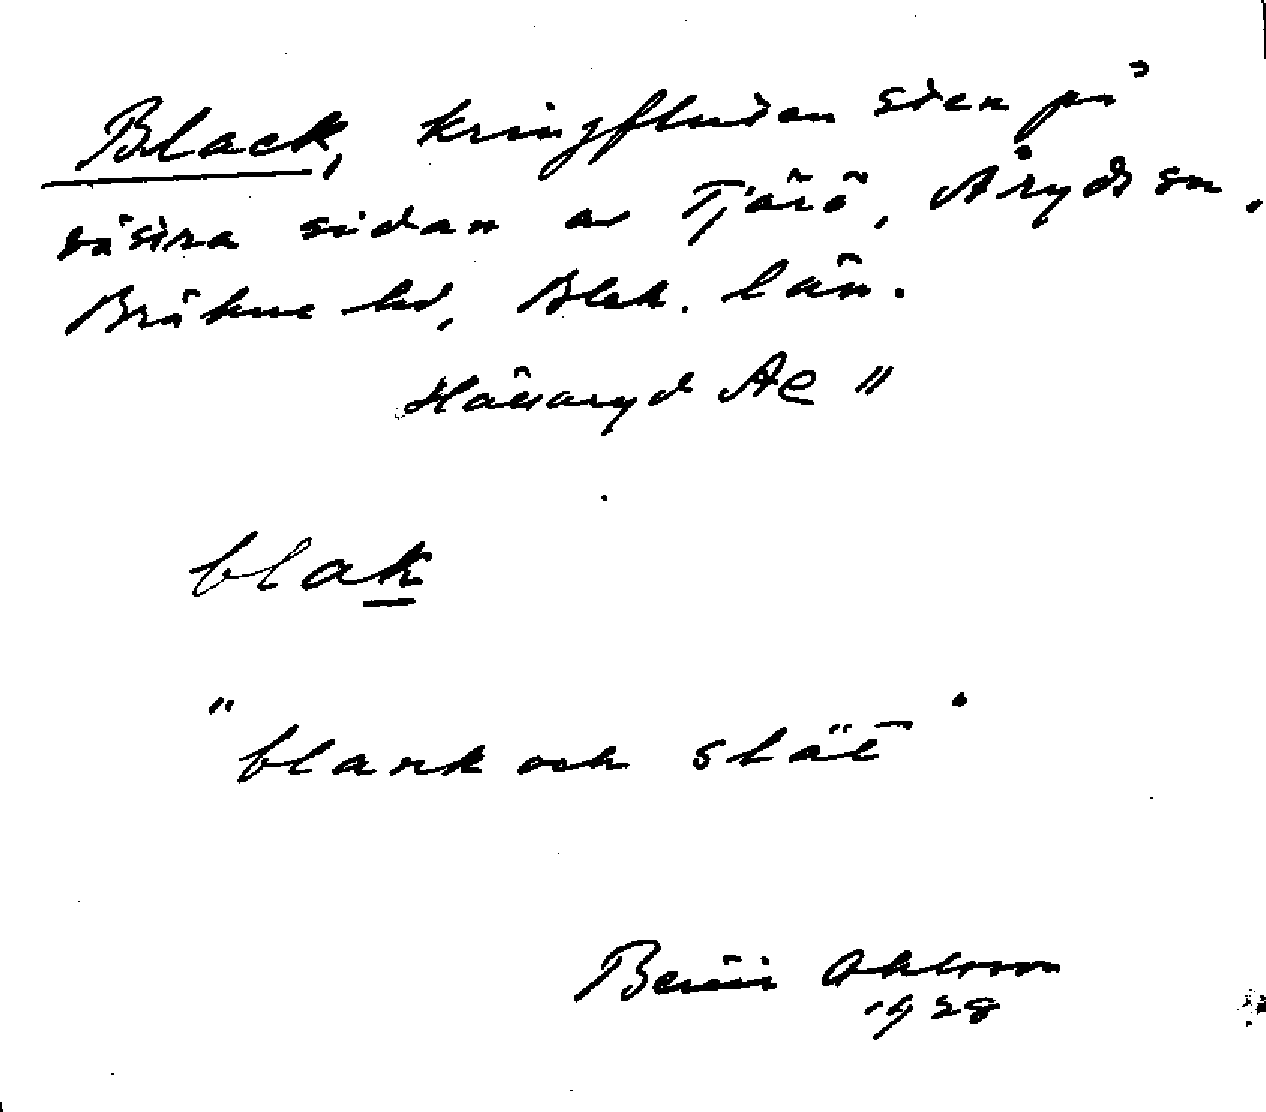 Black, kringfluten sten på
västra sidan av Tjärö, Åryds sn,
Bräkne hd, Blek. län.
Hällaryd AE "
blak
"blank och slät"
Bertil Ohlsson
1928